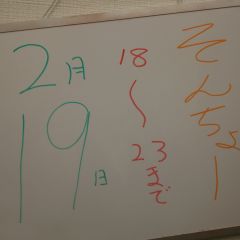 2月
19日
18
〜
23
まで
そんちょー